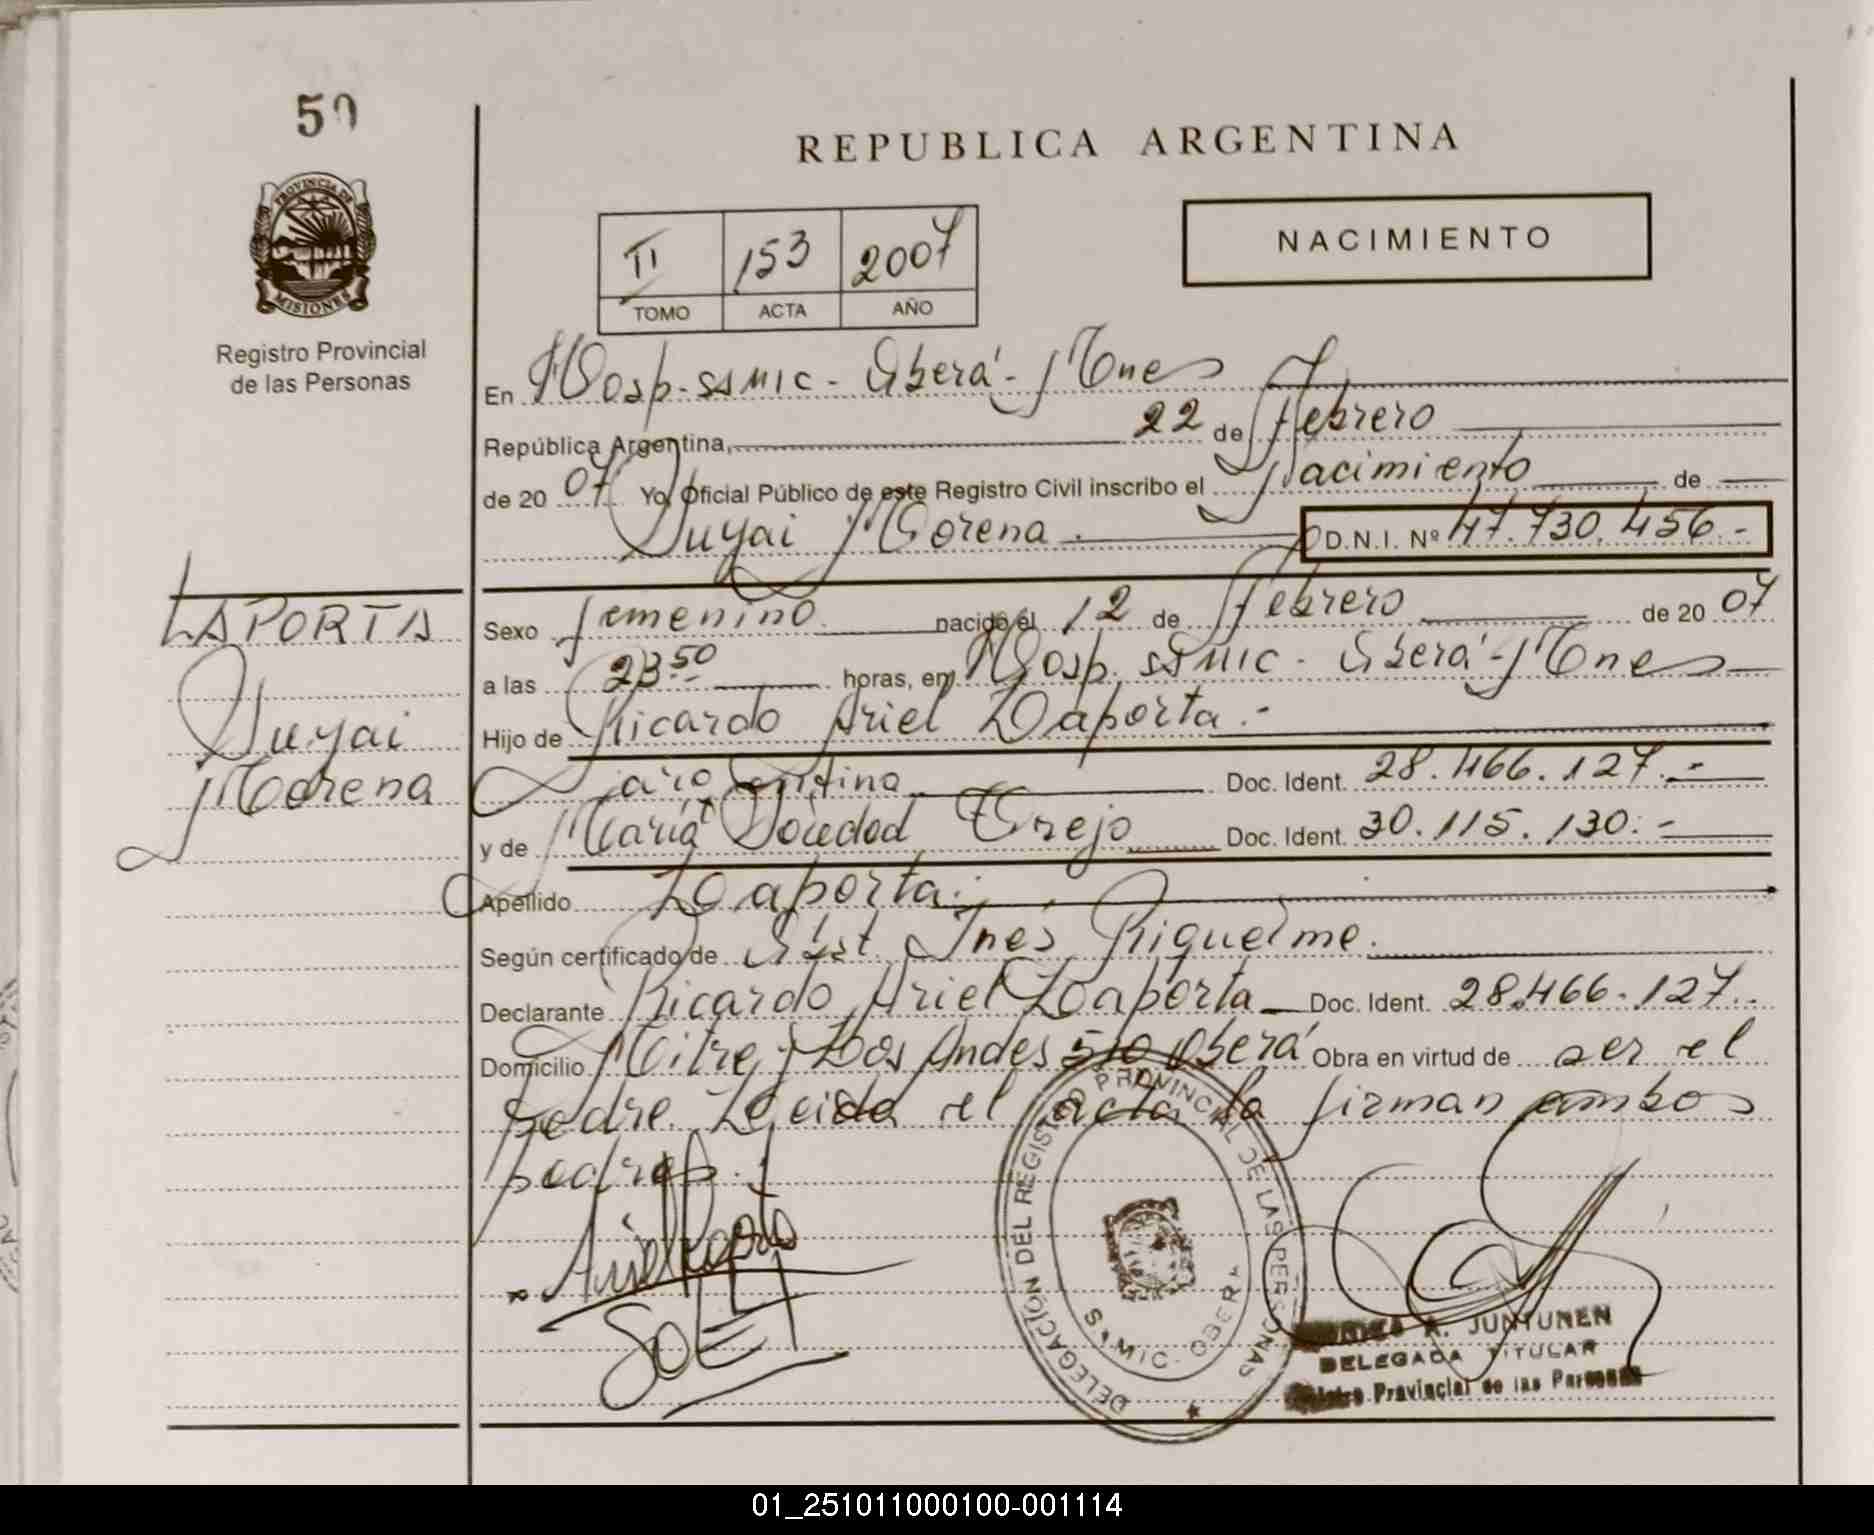 50
REPUBLICA ARGENTINA
PROVINCIA DE
MISIONES
Registro Provincial
de las Personas
II 153 2007
TOMO ACTA AÑO
NACIMIENTO
En Hosp. SSMIC - Oberá - Mnes
República Argentina, 22 de Febrero
de 2007 Yo, Oficial Público de este Registro Civil inscribo el Nacimiento de
Suyai Morena D.N.I. Nº 47.730.456.-
LAPORTA
Suyai
Morena
Sexo femenino nacido el 12 de Febrero de 2007
a las 23.50 horas, en Hosp. SSMIC - Oberá - Mnes
Hijo de Ricardo Ariel Laporta.-
argentino Doc. Ident. 28.466.127.-
y de María Soledad Trejo Doc. Ident. 30.115.130.-
Apellido Laporta.
Según certificado de Obst. Inés Riquelme.
Declarante Ricardo Ariel Laporta Doc. Ident. 28.466.127.-
Domicilio Mitre y Los Andes 510 Oberá Obra en virtud de ser el
padre. Leida el acta la firman ambos
padres.
SOLE T
DELEGACIÓN DEL REGISTRO PROVINCIAL DE LAS PERSONAS
SAMIC - OBERA
A. JUNTUNEN
DELEGADA TITULAR
Provincial de las Personas
01_251011000100-001114